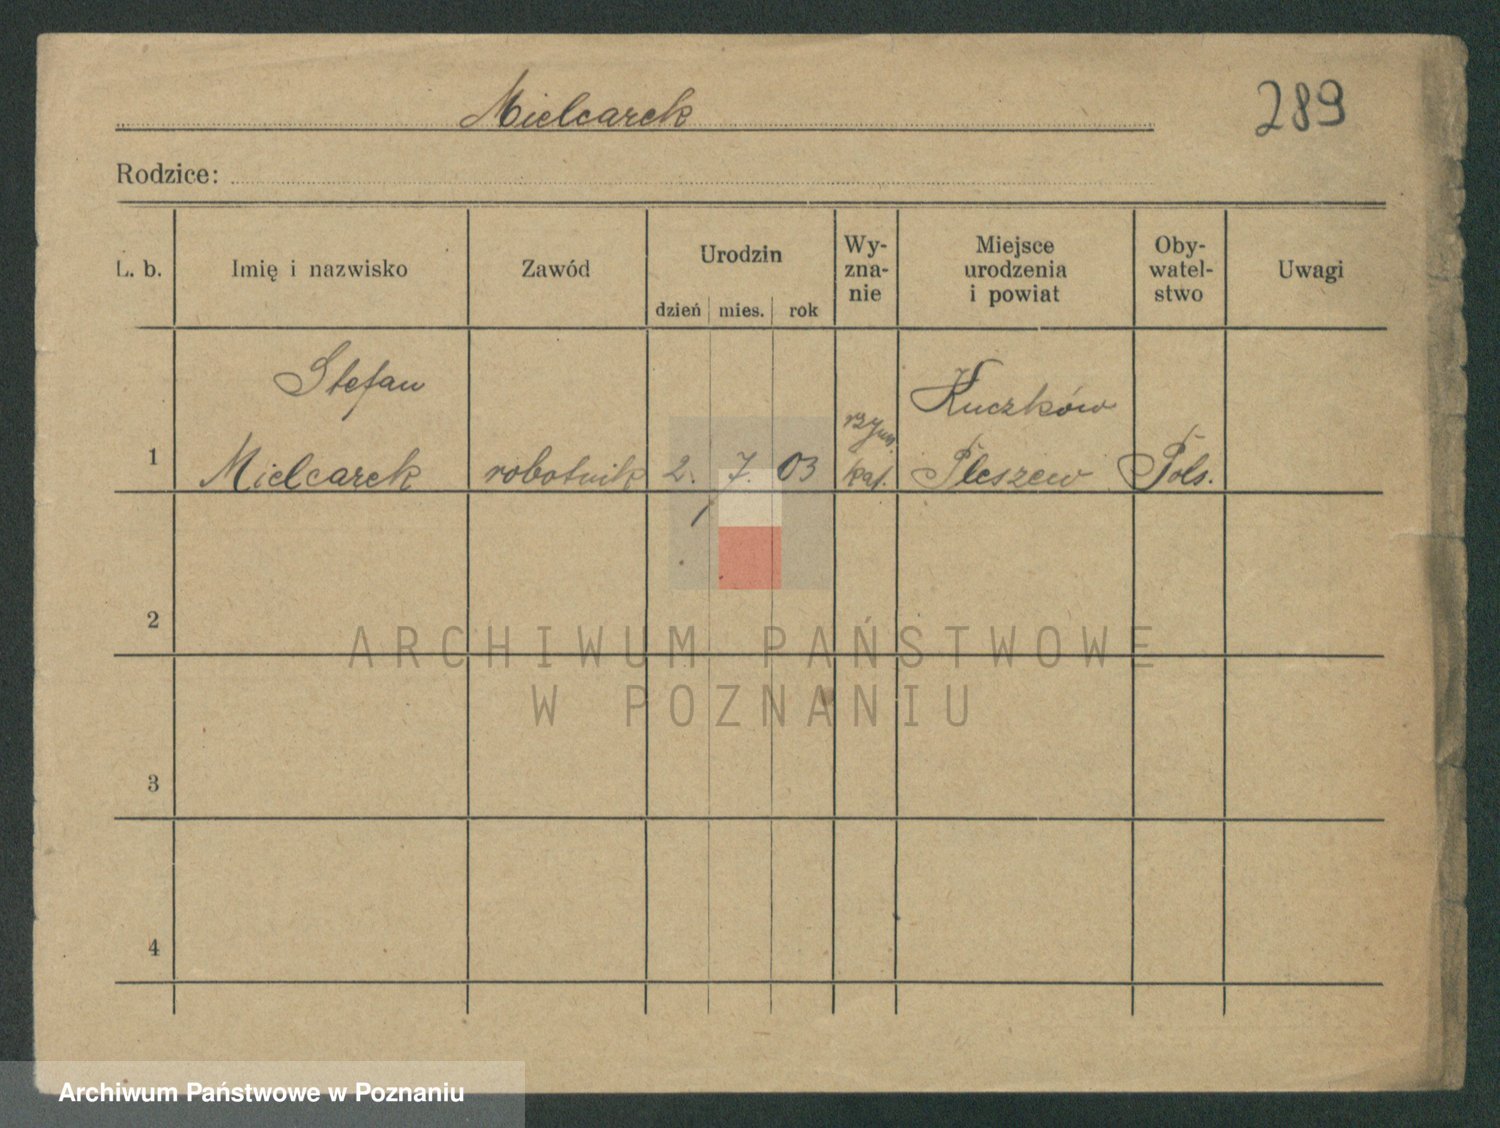 Mielcarek
289
Rodzice:
L. b.
Imię i nazwisko
Zawód
Urodzin
dzień mies. rok
Wy-
zna-
nie
Miejsce
urodzenia
i powiat
Oby-
watel-
stwo
Uwagi
1
Stefan
Mielcarek
robotnik
2. 7. 03
rzym.
kat.
Kuczków
Pleszew
Pols.
2
3
4
ARCHIWUM PAŃSTWOWE
W POZNANIU
Archiwum Państwowe w Poznaniu